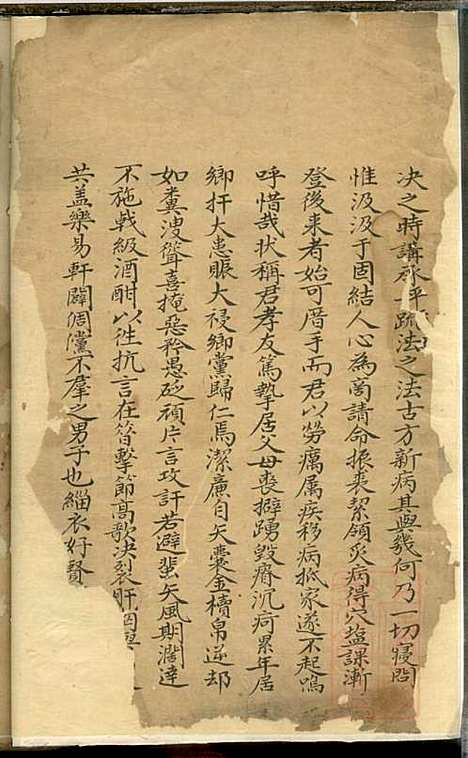 决之時講承平疏法之法古方新病其與幾何乃一切寢閣
惟汲汲于固結人心為啇請命振裘絜領灸病得穴塩課漸
登後来者始可厝手而君以勞癘属疾移病抵家遂不起嗚
呼惜哉状稱君孝友篤摯居父母喪擗踴毀瘠沉疴累年居
鄉扞大患賑大祲鄉黨歸仁焉潔廉自矢橐金櫝帛逆却
如糞溲聳喜掩惡矜愚砭頑片言攻訐若避蜚矢風期濶達
不施戟級酒酣以徃抗言在昔擊節高歌决裂肝
共盖樂易軒闢倜儻不羣之男子也緇衣好賢